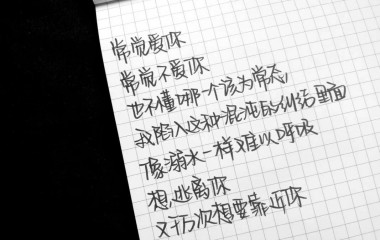 常觉爱你
常觉不爱你
也不懂哪一个该为常态,
我陷入这种混沌的纠结里面
像溺水一样难以呼吸
想逃离你
又千万次想要靠近你